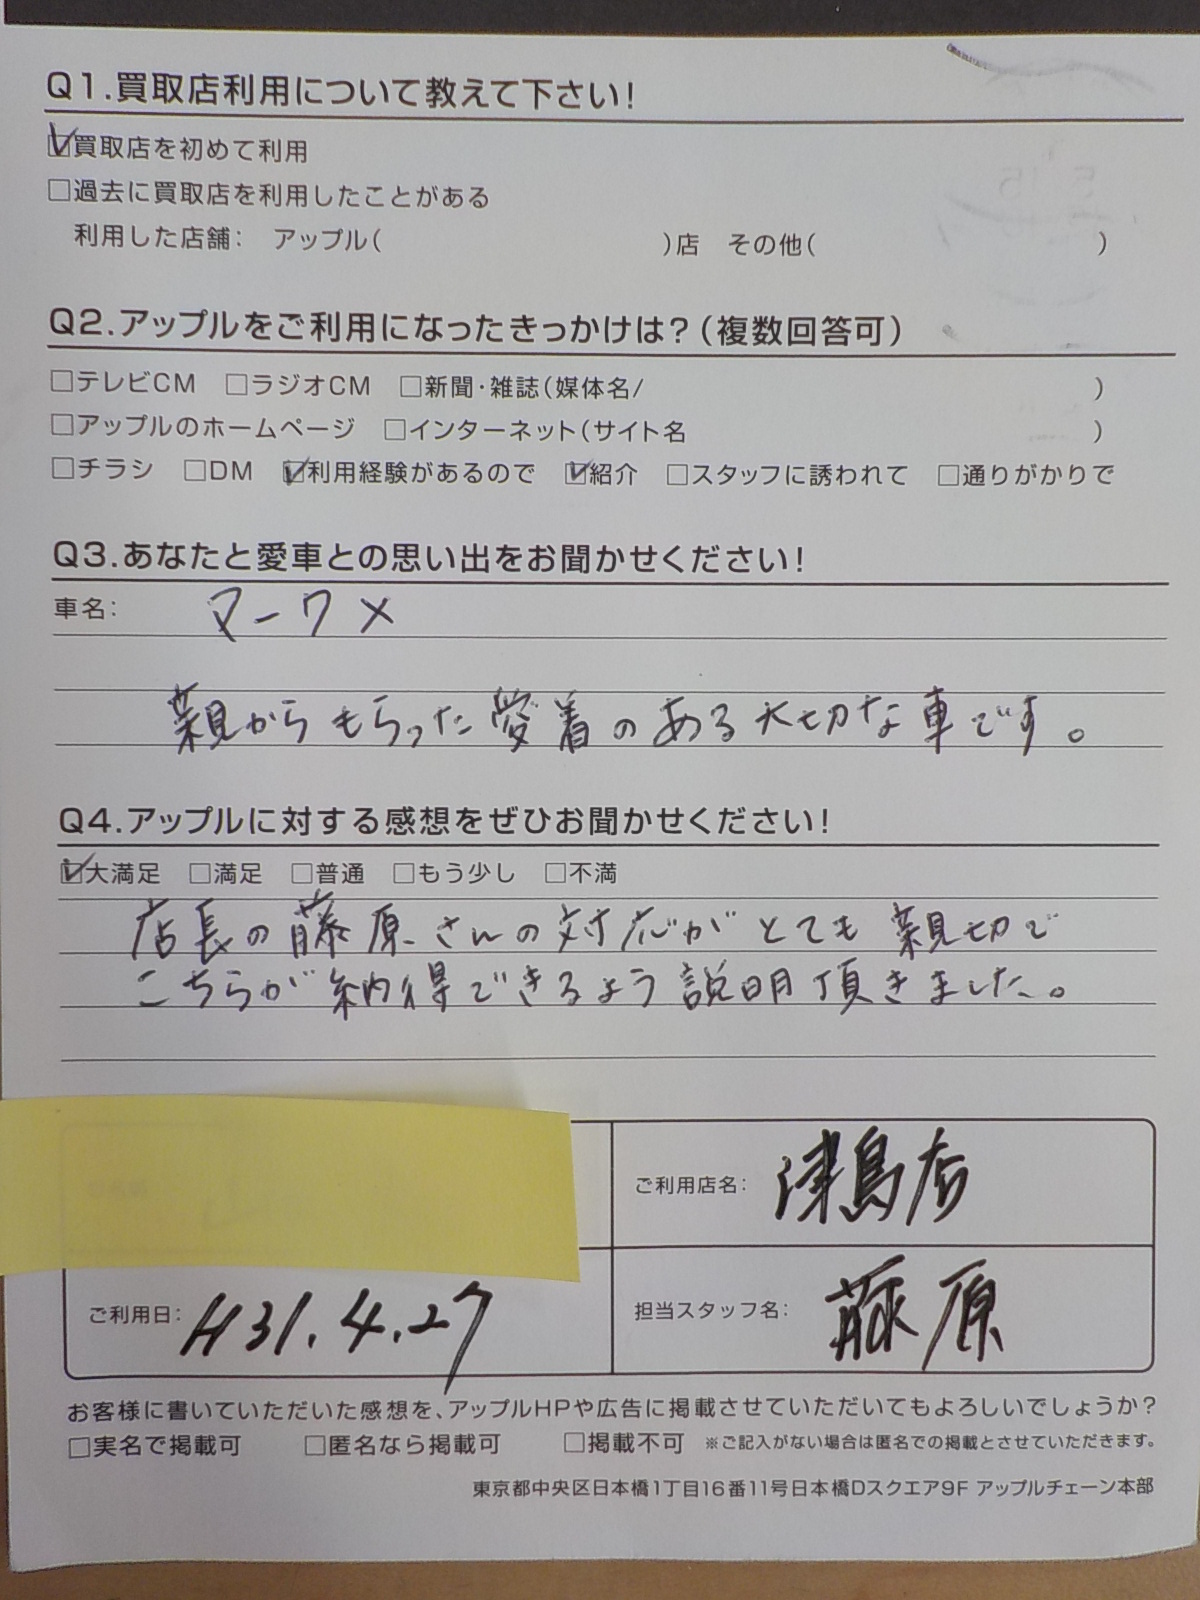 Q1.買取店利用について教えて下さい!
☑買取店を初めて利用
□過去に買取店を利用したことがある
利用した店舗: アップル( )店 その他( )
Q2.アップルをご利用になったきっかけは?(複数回答可)
□テレビCM □ラジオCM □新聞・雑誌(媒体名/ )
□アップルのホームページ □インターネット(サイト名 )
□チラシ □DM ☑利用経験があるので ☑紹介 □スタッフに誘われて □通りがかりで
Q3.あなたと愛車との思い出をお聞かせください!
車名: マークX
親からもらった愛着のある大切な車です。
Q4.アップルに対する感想をぜひお聞かせください!
☑大満足 □満足 □普通 □もう少し □不満
店長の藤原さんの対応がとても親切で
こちらが納得できるよう説明頂きました。
ご利用店名: 津島店
ご利用日: H31.4.27
担当スタッフ名: 藤原
お客様に書いていただいた感想を、アップルHPや広告に掲載させていただいてもよろしいでしょうか?
□実名で掲載可 □匿名なら掲載可 □掲載不可 ※ご記入がない場合は匿名での掲載とさせていただきます。
東京都中央区日本橋1丁目16番11号日本橋Dスクエア9F アップルチェーン本部